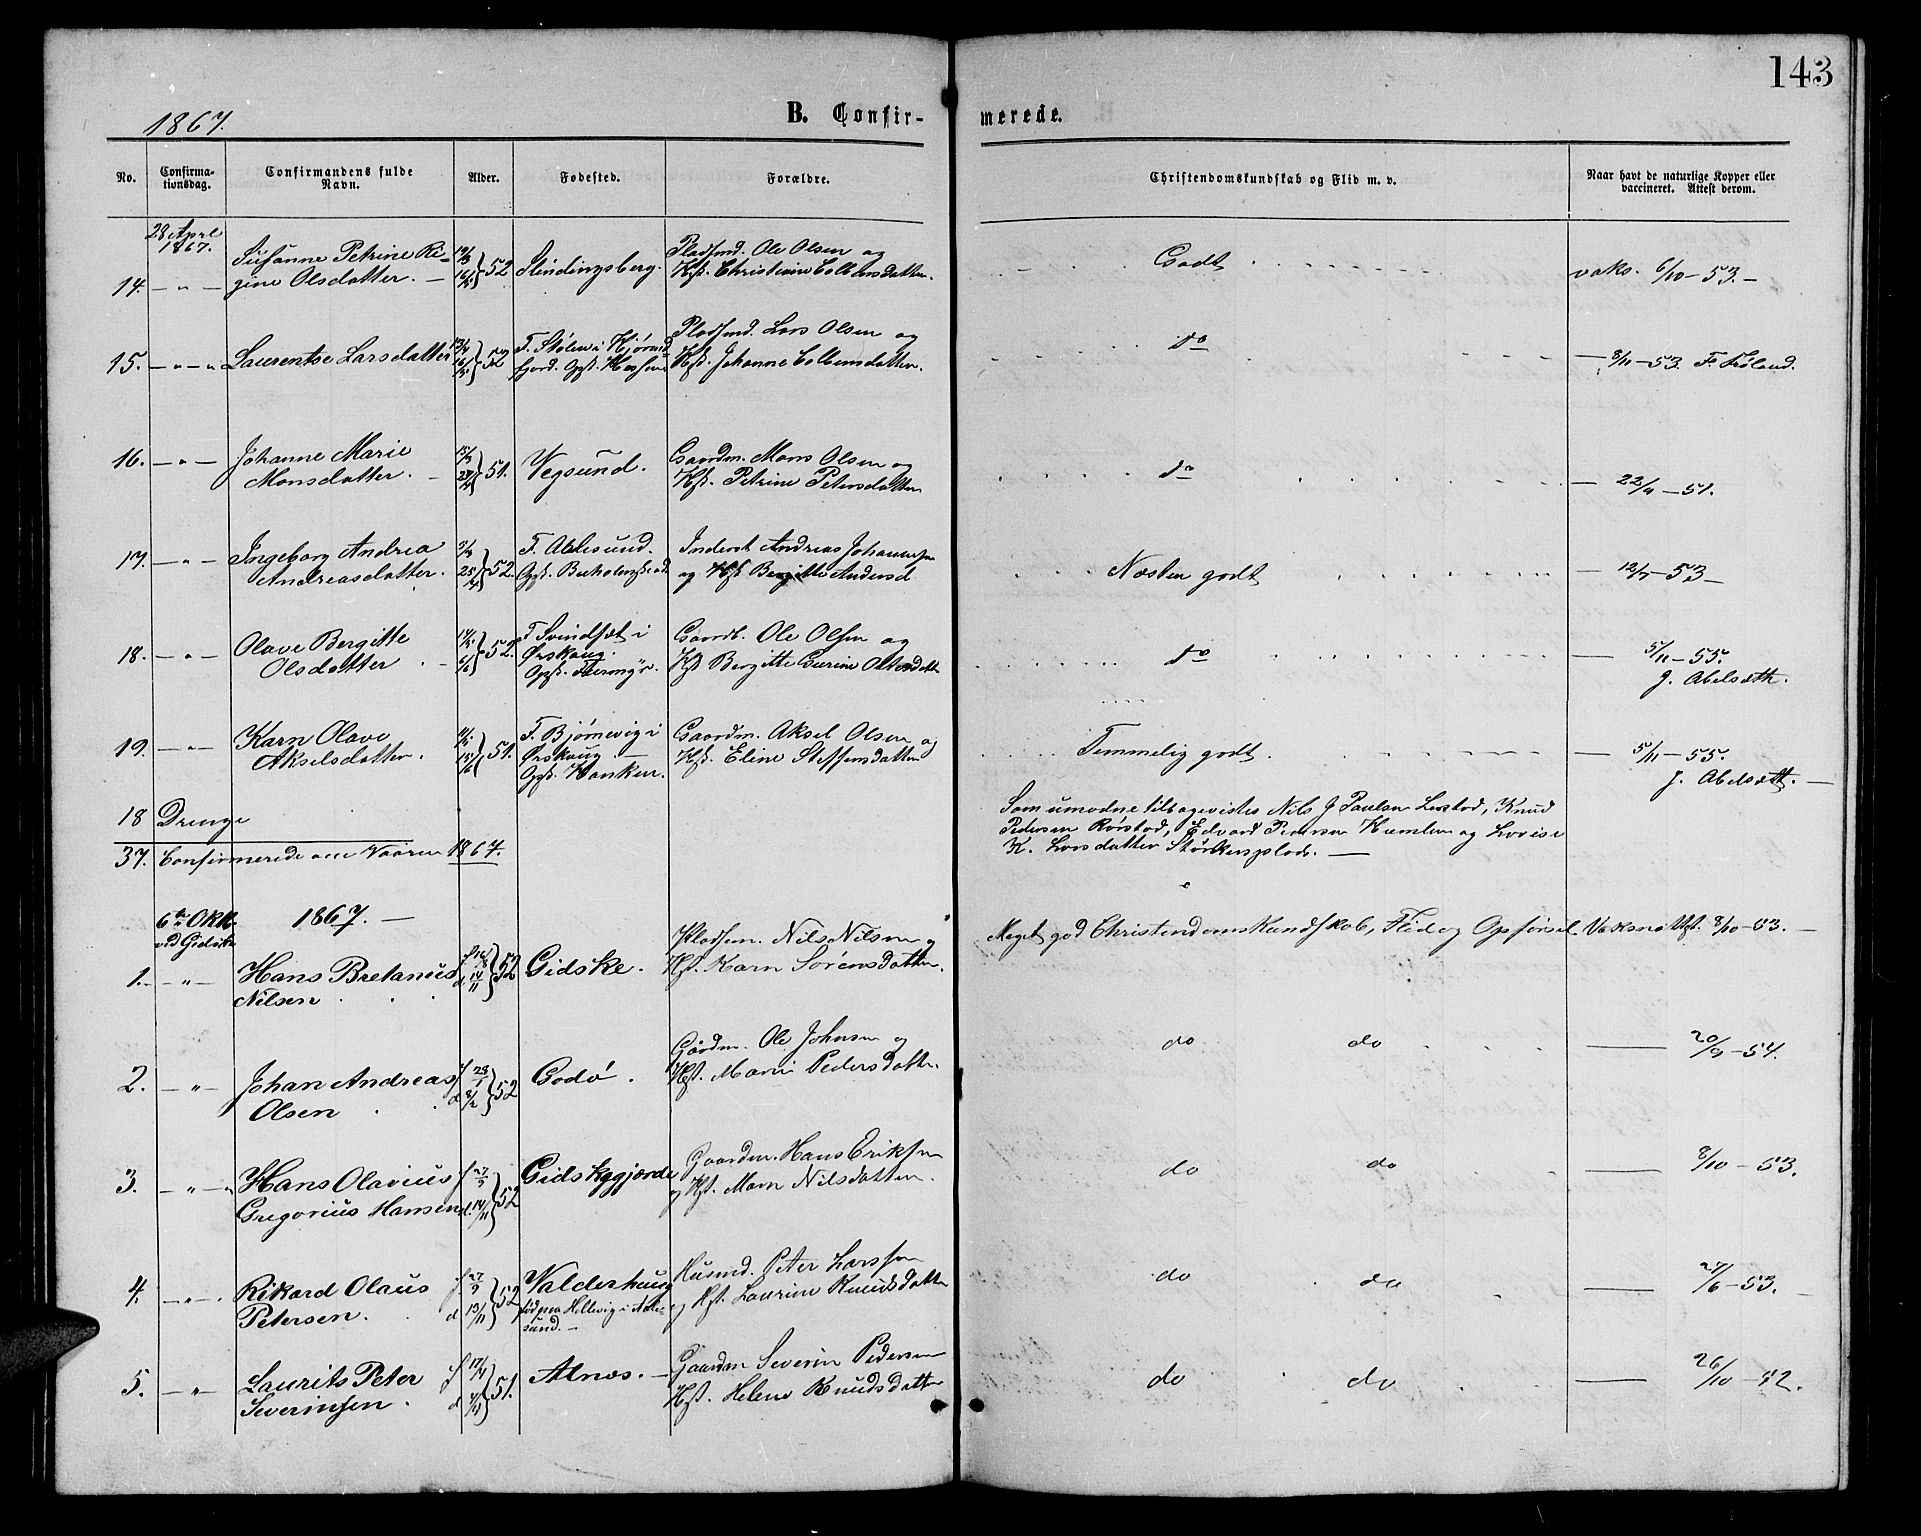 143
1867.
B. Confir-
merede.
No.
Confirma-
tionsdag.
Confirmandens fulde
Navn.
Alder.
Fødested.
Forældre.
Christendomskundskab og Flid m. v.
Naar havt de naturlige Kopper eller
vaccineret. Attest derom.
28 Aprl
1867.
14. — " — Susanne Petrine Re-
gine Olsdatter. — 52 Slindingsberg. Pladsmd. Ole Olsen og
Kst. Christine Colbensdatter. Godt vaks. 6/10 — 53. —
15. — " — " Laurentse Larsdatter 52 F. Stølen i Hjørund
fjord. Opf. Hessen Pladsmd. Lars Olsen og
Kst. Johanne Colbensdatter. do — 8/11 — 53. F. Frøland.
16. — " — Johanne Marie
Monsdatter. — 51. Vegsund. Gaardm. Mons Olsen og
Kst. Petrine Petersdatter do — 22/11 — 51.
17. — " — Ingeborg Andrea
Andreasdatter. 52. F. Aalesund.
Inderst Andreas Johannesen
og Kst Bergitte Andersd Næsten godt — 12/7 — 53 —
18. — " — Olave Bergitte
Olsdatter. 52. F Svindset i
Ørskoug.
Gaardb. Ole Olsen og
Kst Bergitte Gurine do 5/11 — 55.
J. Abelsæth.
19. — " — Karn Olave
Akselsdatter. 51. F. Bjørnevig i
Ørskoug. —
Opf. Hanken. Gaardm. Aksel Olsen og
Kst. Eline Steffensdatter Temmelig godt. — 5/11 — 55.
J. Abelsæth. —
18 Drenge
37. Confirmerede om Vaaren 1867.
Som umodne tilbagevistes Nils J Paulsen Knud
Pedersen Rørstad, Edvard Petersen Humlen og Lovise
K. Larsdatter Størkersplads. —
6te Oktb. 1867. —
ved Gidske
1. — " — Hans Bretanus
Nilsen f 16/8 d 14/11 52 Gidske. Pladsm. Nils Nilsen og
Kst. Karn Sørensdatter. Meget god Christendomskundskab, Flid og Opførsel. Vaksn. Att. 8/10 — 53. —
2. — " — Johan Andreas
Olsen f 28/1 d 8/2 52 Godø. Gaardm. Ole Johnsen og
Kst. Marie Pedersdatter. do do — 20/9 — 54.
3. — " — " Hans Olavius
Gregorius Hansen f 27/9 d. 14/11 52 Gidskegjærde Gaardm. Hans Eriksen
og Kst. Maren Nilsdatter. do do — 8/10 — 53.
4. — " — Rikard Olaus
Petersen. f 27/9 d 13/11 52 Valderhaug
fød paa Hellevig i Aale-
sund. — Husmd. Peter Larssen
og Kst. Laurine Knudsdatter do do — 27/6 — 53.
5. — " Laurits Peter
Severinsen. f 17/1 d 51. Alnæs. — Gaardm Severin Pedersen
Kst. Helene Knudsdatter do do — 26/10 — 52.